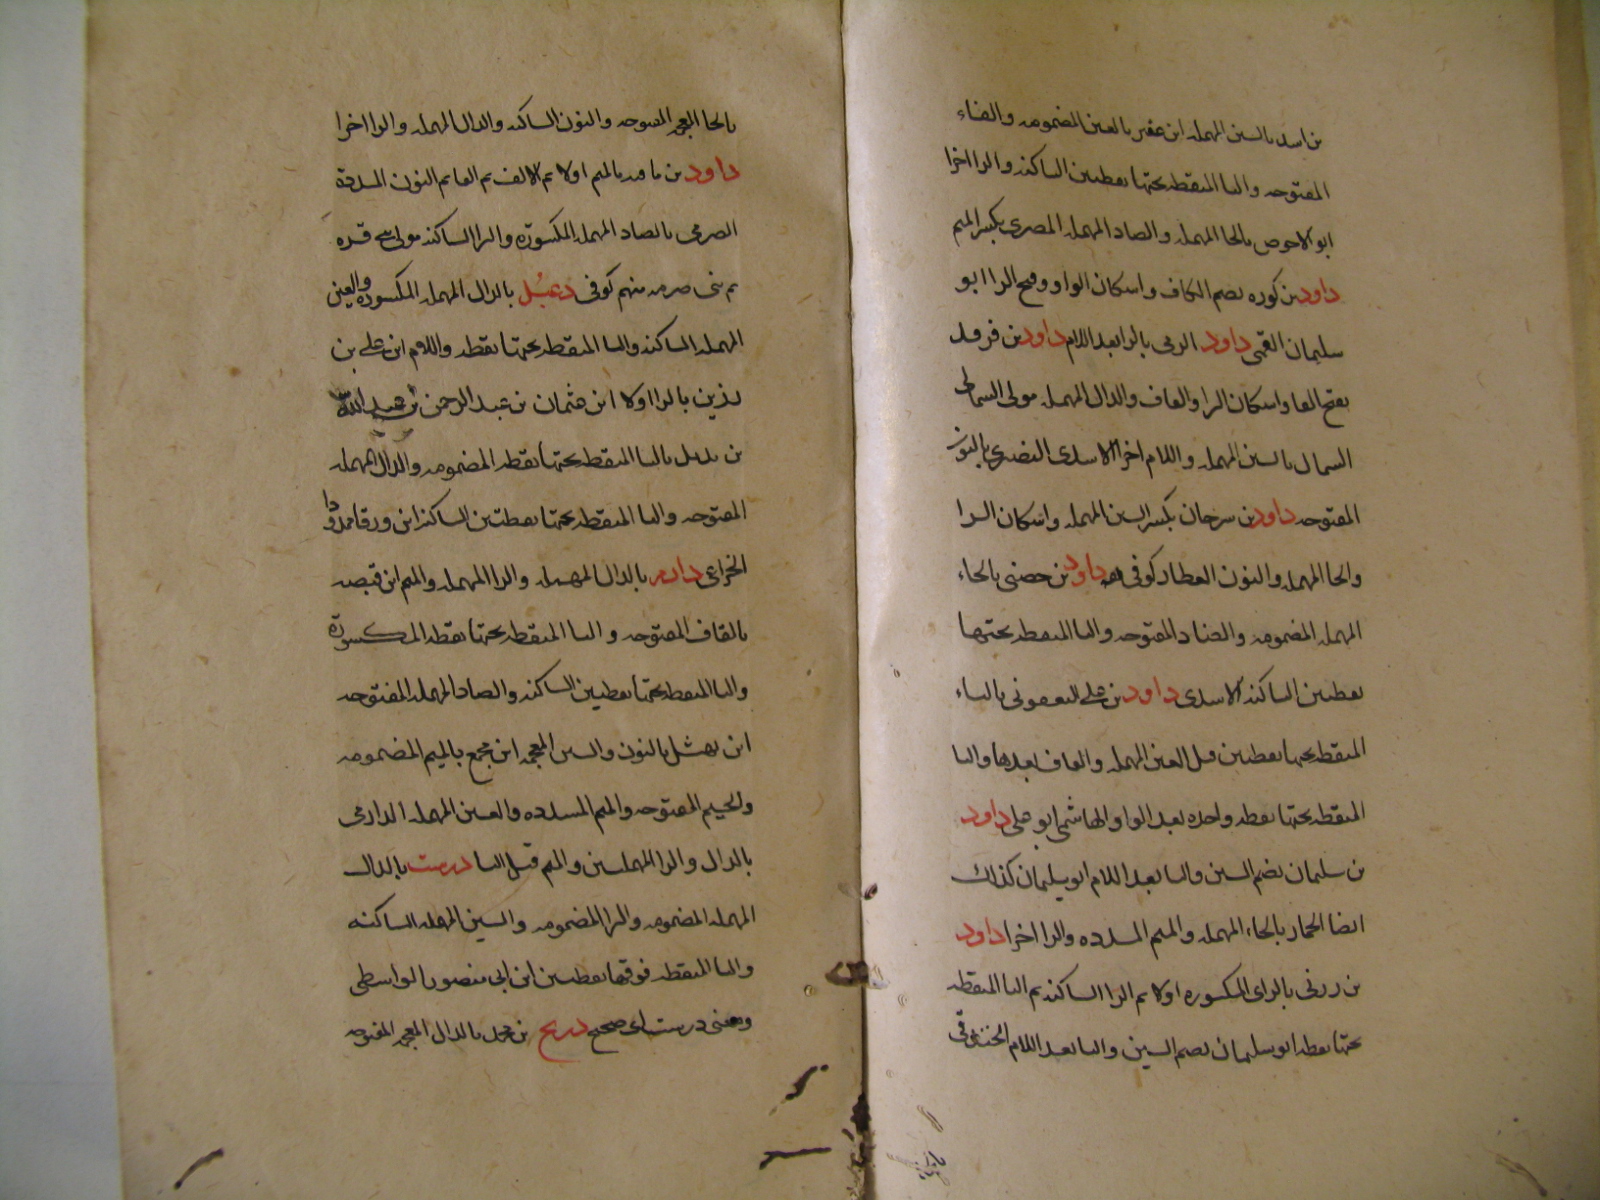 بن اسد بالسين المهمله ابن عفير بالعين المضمومه والفاء
المفتوحه واليا المنقطه تحتها نقطتين الساكنه والرا اخرا
ابو الاحوص بالحا المهمله والصاد المهمله المصرى بكسر الميم
داود بن كوره بضم الكاف واسكان الواو وفتح الرا ابو
سليمان القمى داود الرقى بالرا بعد اللام داود بن فرقد
بفتح الفا واسكان الرا والقاف والدال المهمله مولى السمالى
السمال بالسين المهمله واللام اخرا الاسدى النصرى بالنون
المفتوحه داود بن سرحان بكسر السين المهمله واسكان الرا
والحا المهمله والنون العطار كوفى داود بن حصنى بالحاء
المهمله المضمومه والضاد المفتوحه واليا المنقطه تحتها
نقطتين الساكنه الاسدى داود بن على اليعقوبى بالياء
المنقطه تحتها نقطتين قبل العين المهمله والقاف بعدها والبا
المنقطه تحتها نقطه واحده بعد الواو الهاشمى ابو على داود
بن سليمان بضم السين واليا بعد اللام ابو سليمان كذلك
ايضا الحمار بالحاء المهمله والميم المشدده والرا اخرا داود
بن زربى بالزاى المكسوره اولا ثم الرا الساكنه ثم البا المنقطه
تحتها نقطه ابو سليمان بضم السين واليا بعد اللام الخندقى
بالخا المعجمه المفتوحه والنون الساكنه والدال المهمله والرا اخرا
داود بن مافنه بالميم اولا ثم الالف ثم الفا ثم النون المشددة
الصرمى بالصاد المهمله المكسورة والرا الساكنه مولى بنى قره
ثم بنى صرمه منهم كوفى دعبل بالدال المهمله المكسوره والعين
المهمله الساكنه والبا المنقطه تحتها نقطه واللام ابن على بن
رزين بالرا اولا ابن عثمان بن عبد الرحمن بن عبد الله
بن بديل بالبا المنقطه تحتها نقطه المضمومه والدال المهمله
المفتوحه واليا المنقطه تحتها نقطتين الساكنه ابن ورقا ممدودا
الخزاعى دارم بالدال المهمله والرا المهمله والميم ابن قبيصه
بالقاف المفتوحه والبا المنقطه تحتها نقطه المكسورة
واليا المنقطه تحتها نقطتين الساكنه والصاد المهمله المفتوحه
ابن نهشل بالنون والشين المعجمه ابن مجمع بالميم المضمومه
والجيم المفتوحه والميم المشدده والعين المهمله الدارمى
بالدال والرا المهملتين والميم قبل اليا درست بالدال
المهمله المضمومه والرا المضمومه والسين المهمله الساكنه
والتا المنقطه فوقها نقطتين ابن ابى منصور الواسطى
ومعنى درست اى صحيح ذريح بن محمد بالذال المعجمه المفتوحه